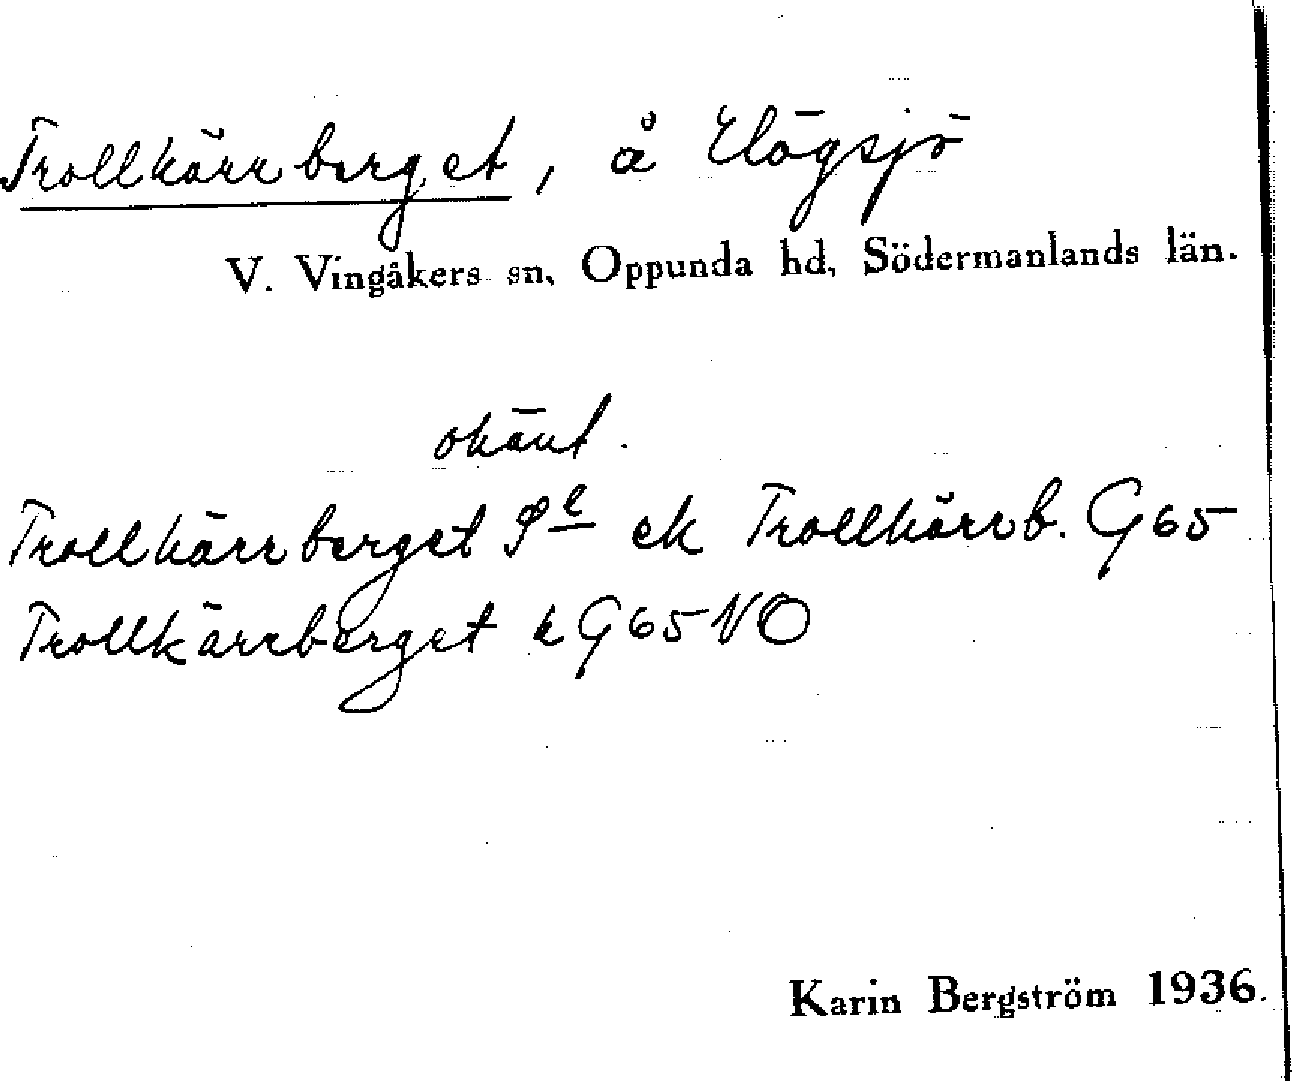 Trollkärrberget, å Högsjö
V. Vingåkers sn, Oppunda hd, Södermanlands län.
okänt.
Trollkärrberget ek Trollkärrb. G65
Trollkärrberget k G65 NO
Karin Bergström 1936.